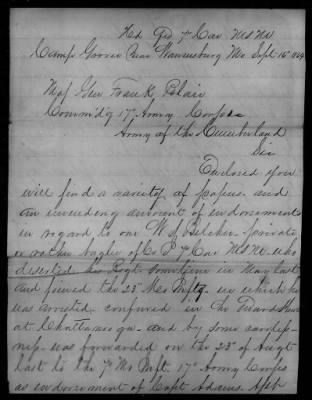 Hd Qrs 7th Cav MSM
Camp Grover Near Warrensburg Mo Sept 16th 1864
Maj Gen Frank Blair
Commd'g 17th Army Corps
Army of the Cumberland
Sir
Enclosed you
will find a variety of papers and
an unending amount of indorsement
in regard to one W J Belcher private
or rather bugler of Co 7 Cav MSM who
deserted his Regt sometime in May last
and joined the 23d Mo Inftry in which he
was arrested confined in the Guard House
at Chattanooga and by some
was forwarded on the 23d of Augt
last to the 7th Mo Inft 17th Army Corps
as indorsement of Capt Adams